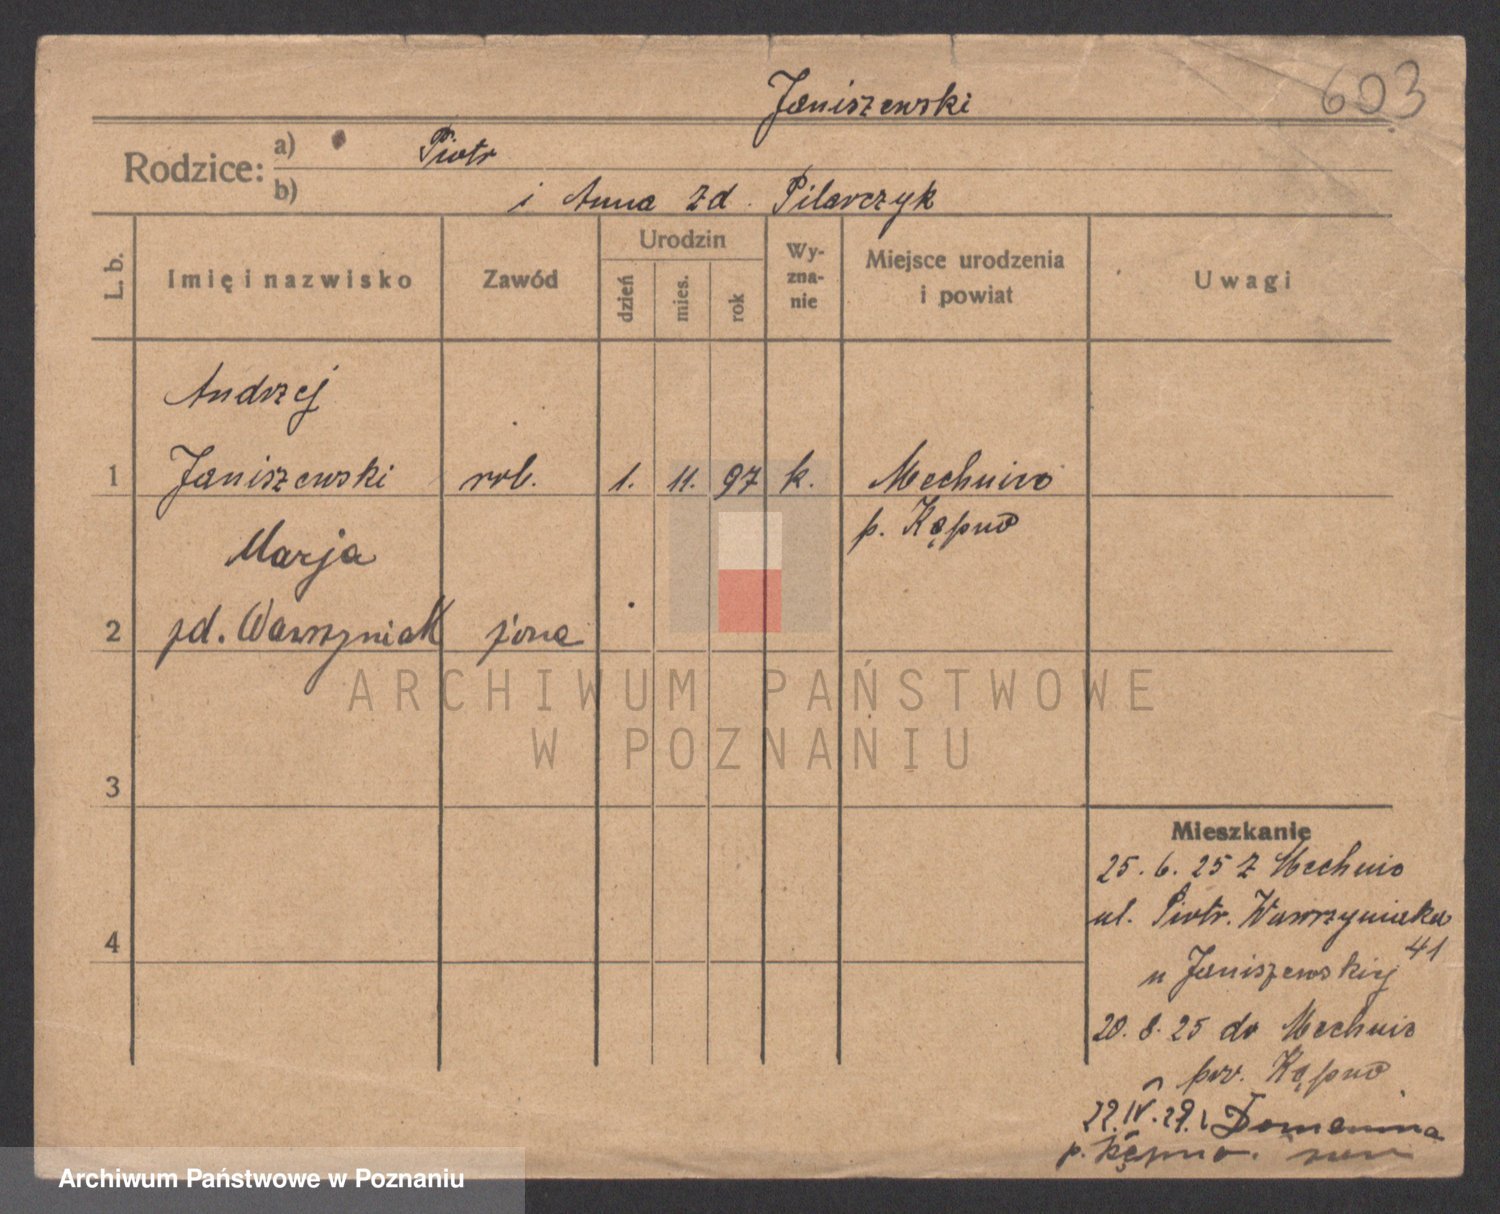 603
Janiszewski
Rodzice: a) Piotr
b) i Anna zd. Pilarczyk
L. b.
Imię i nazwisko
Zawód
Urodzin
dzień
mies.
rok
Wy-
zna-
nie
Miejsce urodzenia
i powiat
Uwagi
Andrzej
1 Janiszewski rob. 1. 11. 97 k. Mechnice
p. Kępno
Marja
2 zd. Wawrzyniak żona
ARCHIWUM PAŃSTWOWE
W POZNANIU
3
Mieszkanie
25. 6. 25 z Mechnic
ul. Piotr. Wawrzyniaka
4
41
u Janiszewskiej
20. 8. 25 do Mechnic
pow. Kępno
IV. 29. z Domanina
p. Kępno.
Archiwum Państwowe w Poznaniu